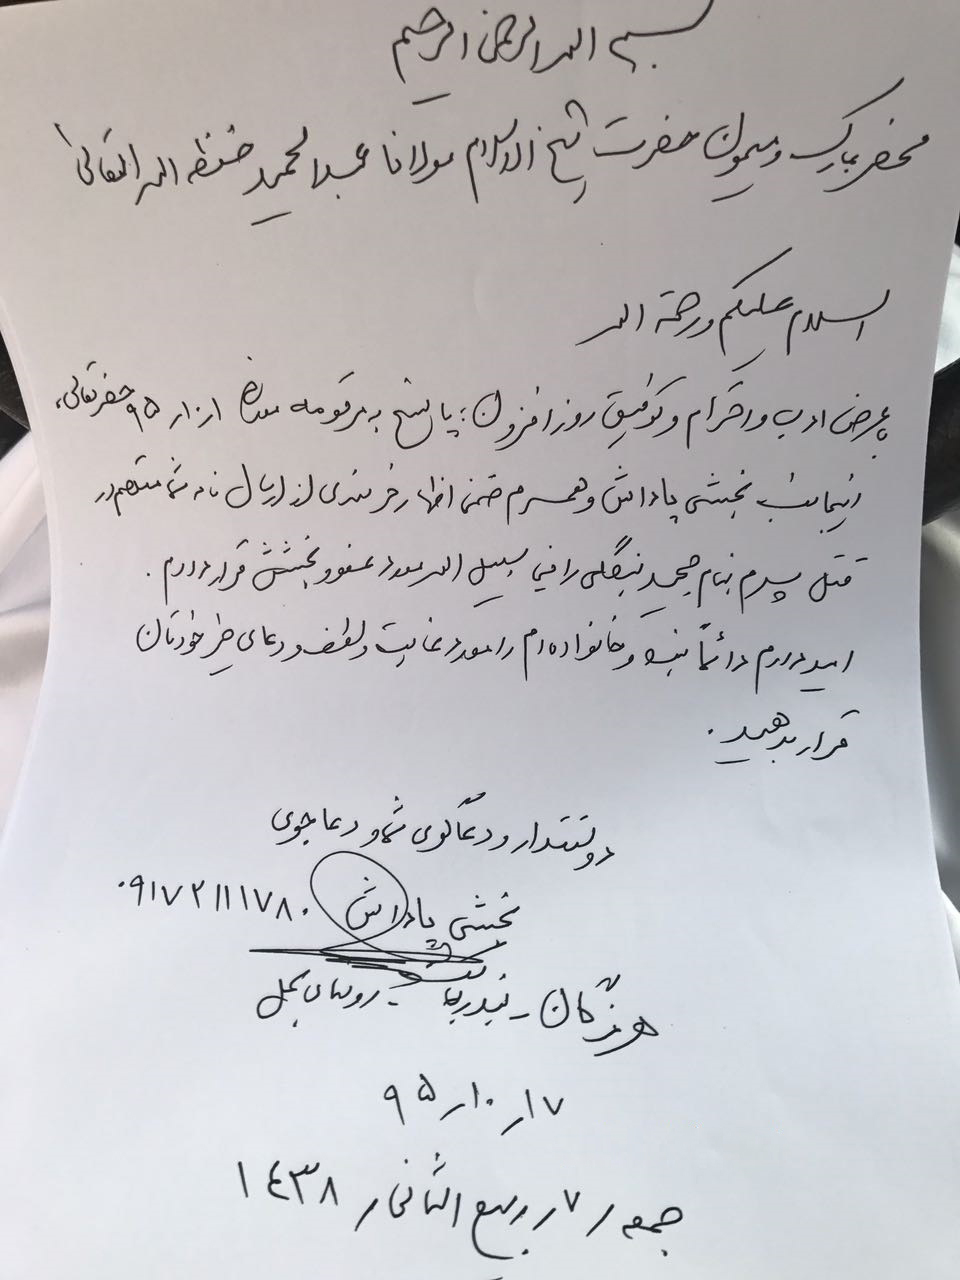 بسم الله الرحمن الرحیم
محضر مبارک و میمون حضرت شیخ الاسلام مولانا عبدالحمید حفظه الله تعالی
السلام علیکم ورحمة الله
بعرض ادب و احترام و توفیق روز افزون؛ پاسخ به مرقومه ۱۰ر۹۵ حضرتعالی،
اینجانب بخشی پاداش و همسرم ضمن اظهار خرسندی از ارسال نامه شما متهم در
قتل پسرم بنام را فی سبیل الله مورد عفو و بخشش قرار دادم.
امیددارم دائماً بنده و خانواده ام را مورد عنایت و لطف و دعای خیر خودتان
قرار بدهید.
دوستدار و دعاگوی شما و دعا جوی
بخشی پاداش ۰۹۱۷۲۱۱۱۷۸۰
هرمزگان - - روستای
۱۷ر۱۰ر۹۵
جمعه ر ۷ر ربیع الثانی ر ۱۴۳۸